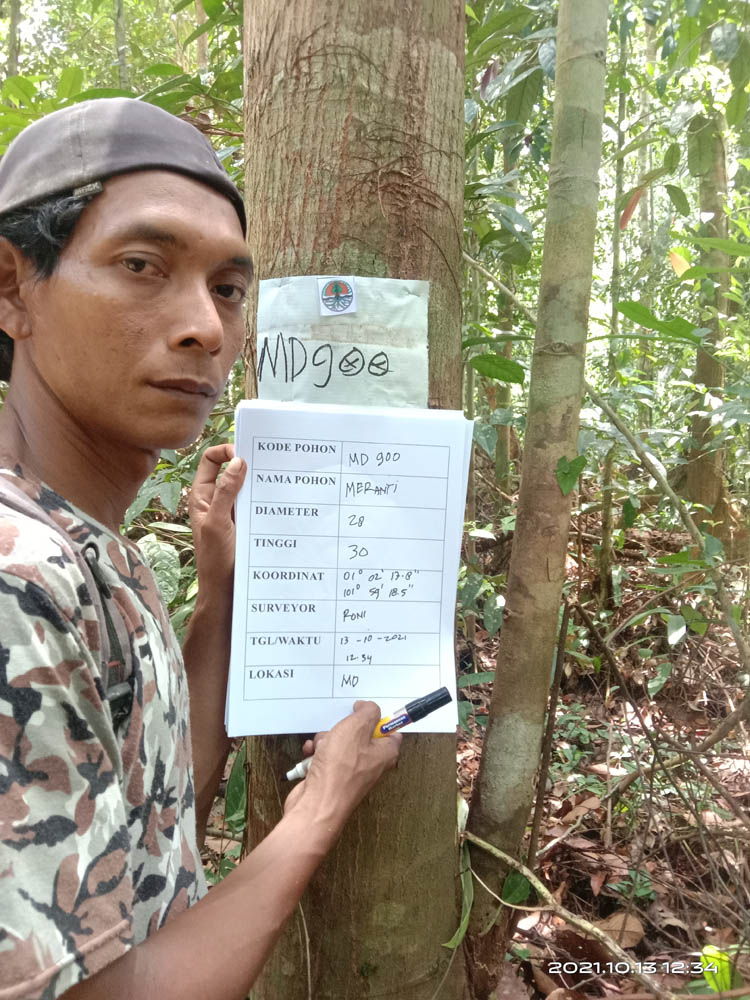 MD900
KODE POHON MD 900
NAMA POHON MERANTI
DIAMETER 28
TINGGI 30
KOORDINAT 01° 02' 17.8"
101° 59' 18.5"
SURVEYOR RONI
TGL/WAKTU 13 -10 -2021
12.34
LOKASI MD
2021.10.13 12:34